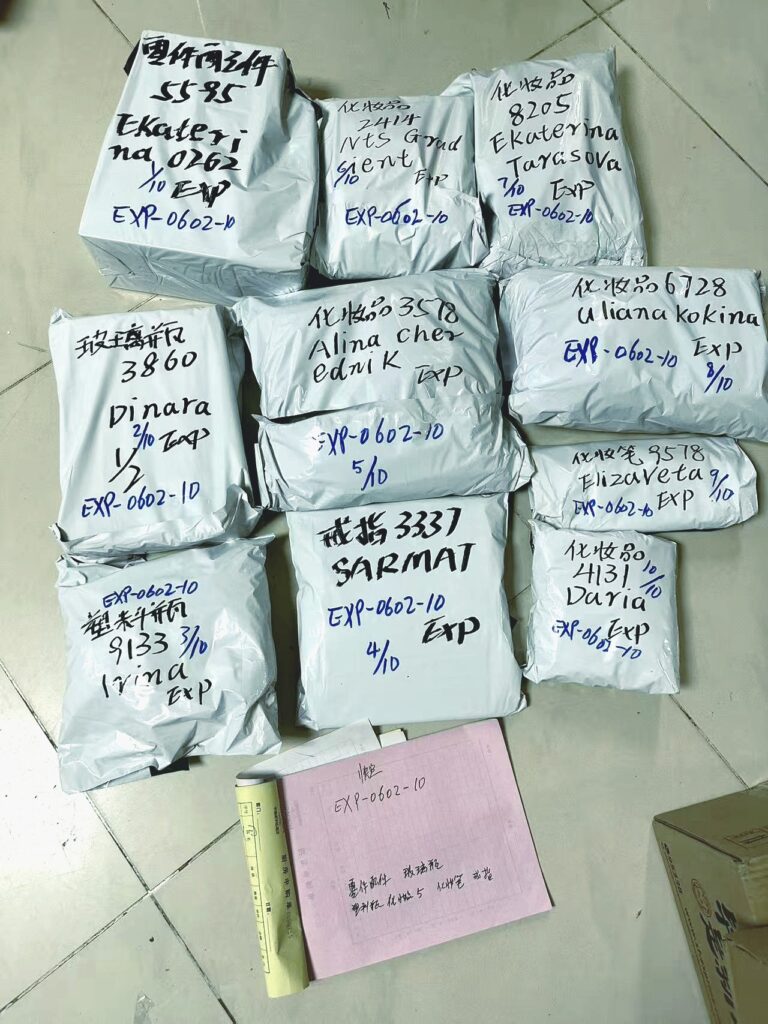 零件配件
5595
Ekateri
na 0262
1/10
Exp
EXP-0602-10
化妆品
2414
Nts Grad
ient
6/10
Exp
EXP-0602-10
化妆品
8205
Ekaterina
Tarasova
7/10
Exp
EXP-0602-10
玻璃瓶
3860
Dinara
2/10 Exp
1/2
EXP-0602-10
化妆品3578
Alina Cher
ednik Exp
EXP-0602-10
5/10
化妆品6728
uliana kokina
EXP-0602-10 Exp
8/10
化妆笔 9578
Elizaveta 9/10
EXP-0602-10 Exp
EXP-0602-10
塑料瓶
9133 3/10
Irina
Exp
戒指3337
SARMAT
EXP-0602-10
Exp
4/10
化妆品
4131 10/10
Daria
Exp
EXP-0602-10
EXP-0602-10
零件配件 玻璃瓶
塑料瓶 化妆品5 化妆笔 戒指